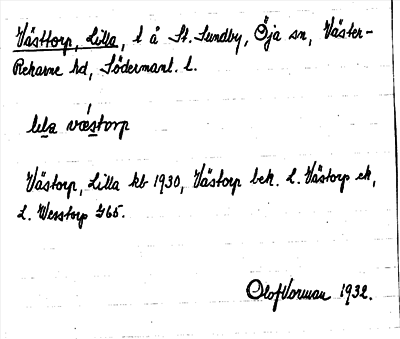 Västtorp, Lilla, t å St. Sundby, Öja sn, Väster-
Rekarne hd, Södermanl. l.
lıla væstorp
Västorp, Lilla kb 1930, Västorp bek. L. Västorp ek,
L. Wesstorp 765.
Olof Vorman 1932.